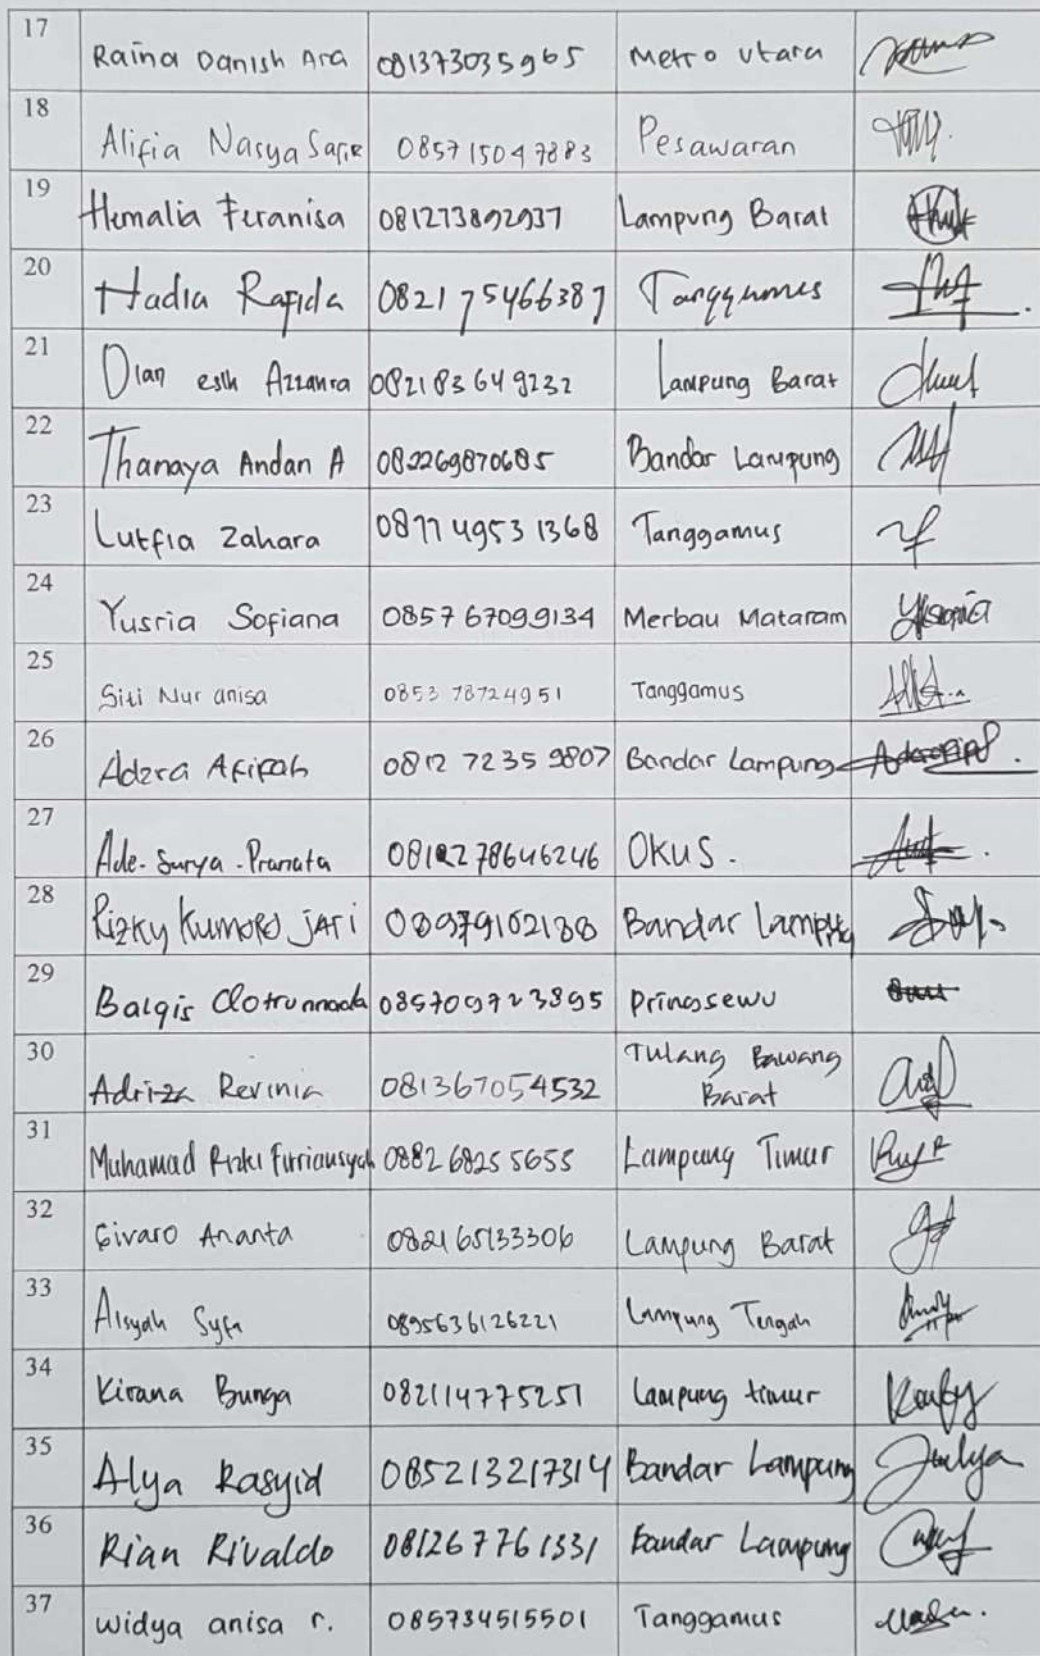 17 Raina Danish Ara 081373035965 Metro Utara
18 Alifia Nasya Safir 085715047883 Pesawaran
19 Hemalia Feranisa 081273892937 Lampung Barat
20 Hadia Rafida 082175466387 Tanggumus
21 Dian esth Azzahra 082183649232 Lampung Barat
22 Thanaya Andan A 082269870685 Bandar Lampung
23 Lutfia Zahara 0877 4953 1368 Tanggamus
24 Yusria Sofiana 0857 67099134 Merbau Mataram
25 Siti Nur anisa 0853 78724951 Tanggamus
26 Adzra Afifah 0812 7235 9807 Bandar Lampung
27 Ade-Surya-Pranata 081278646246 OKUS.
28 Rizky Kumoro Jati 08979102188 Bandar Lampung
29 Balqis 085709723895 Pringsewu
30 Adriza Revinia 081367054532 Tulang Bawang
Barat
31 Muhamad Rizki Firriansyah 0882 6825 5655 Lampung Timur
32 Givaro Ananta 082165133306 Lampung Barat
33 Aisyah Syfa 0895636126221 Lampung Tengah
34 Kirana Bunga 082114775251 Lampung timur
35 Alya Rasyid 085213217314 Bandar Lampung
36 Rian Rivaldo 081267761331 Bandar Lampung
37 Widya anisa r. 085734515501 Tanggamus